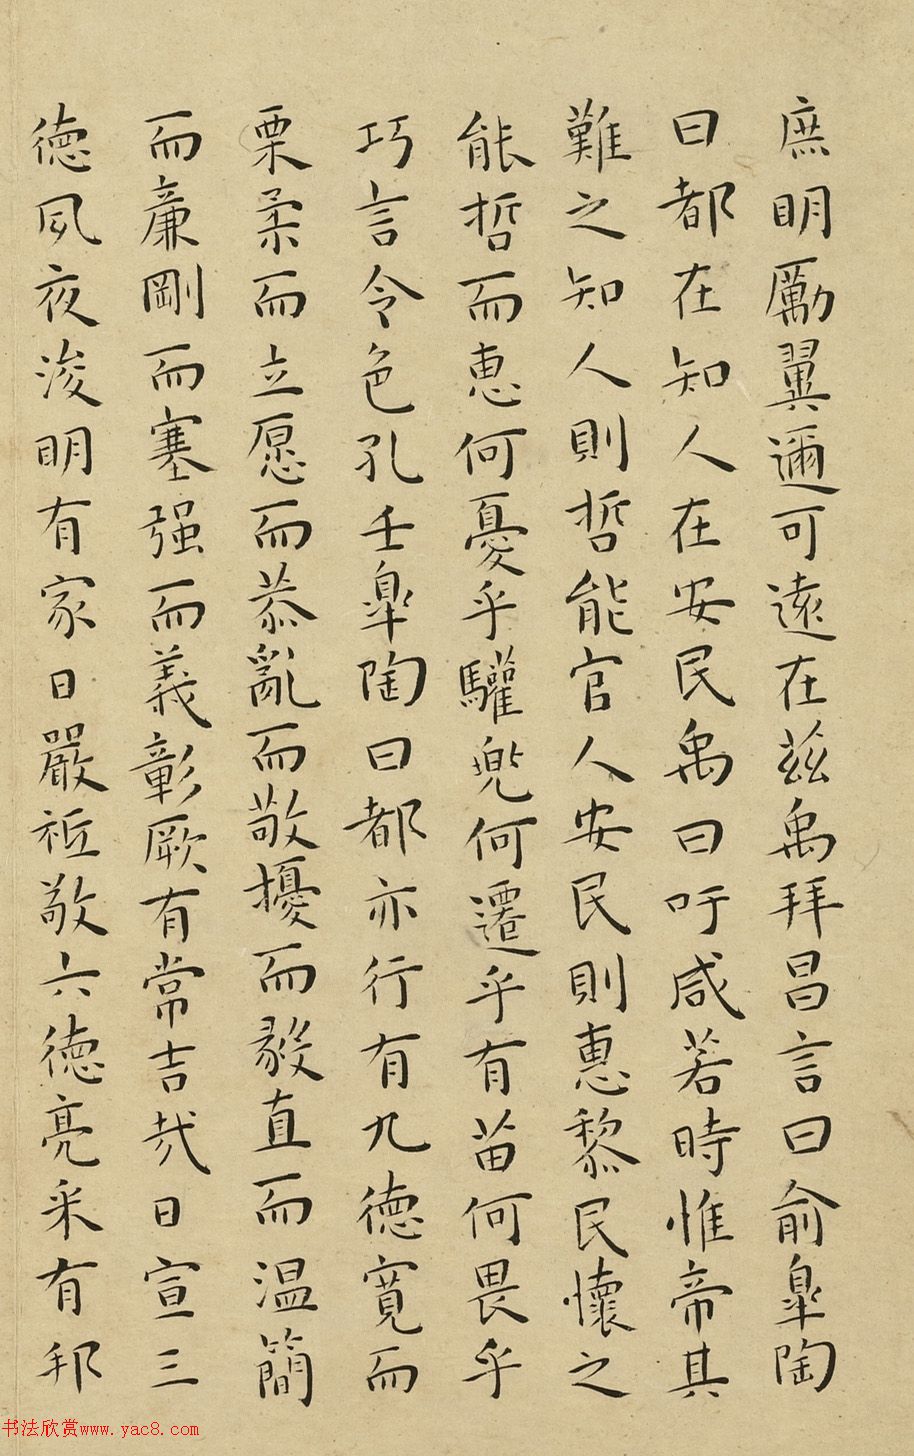 庶明勵翼邇可遠在茲禹拜昌言曰俞皐陶
曰都在知人在安民禹曰吁咸若時惟帝其
難之知人則哲能官人安民則惠黎民懷之
能哲而惠何憂乎驩兜何遷乎有苗何畏乎
巧言令色孔壬皐陶曰都亦行有九德寬而
栗柔而立愿而恭亂而敬擾而毅直而温簡
而廉剛而塞强而義彰厥有常吉哉日宣三
德夙夜浚明有家日嚴祗敬六德亮采有邦
书法欣赏www.yac8.com